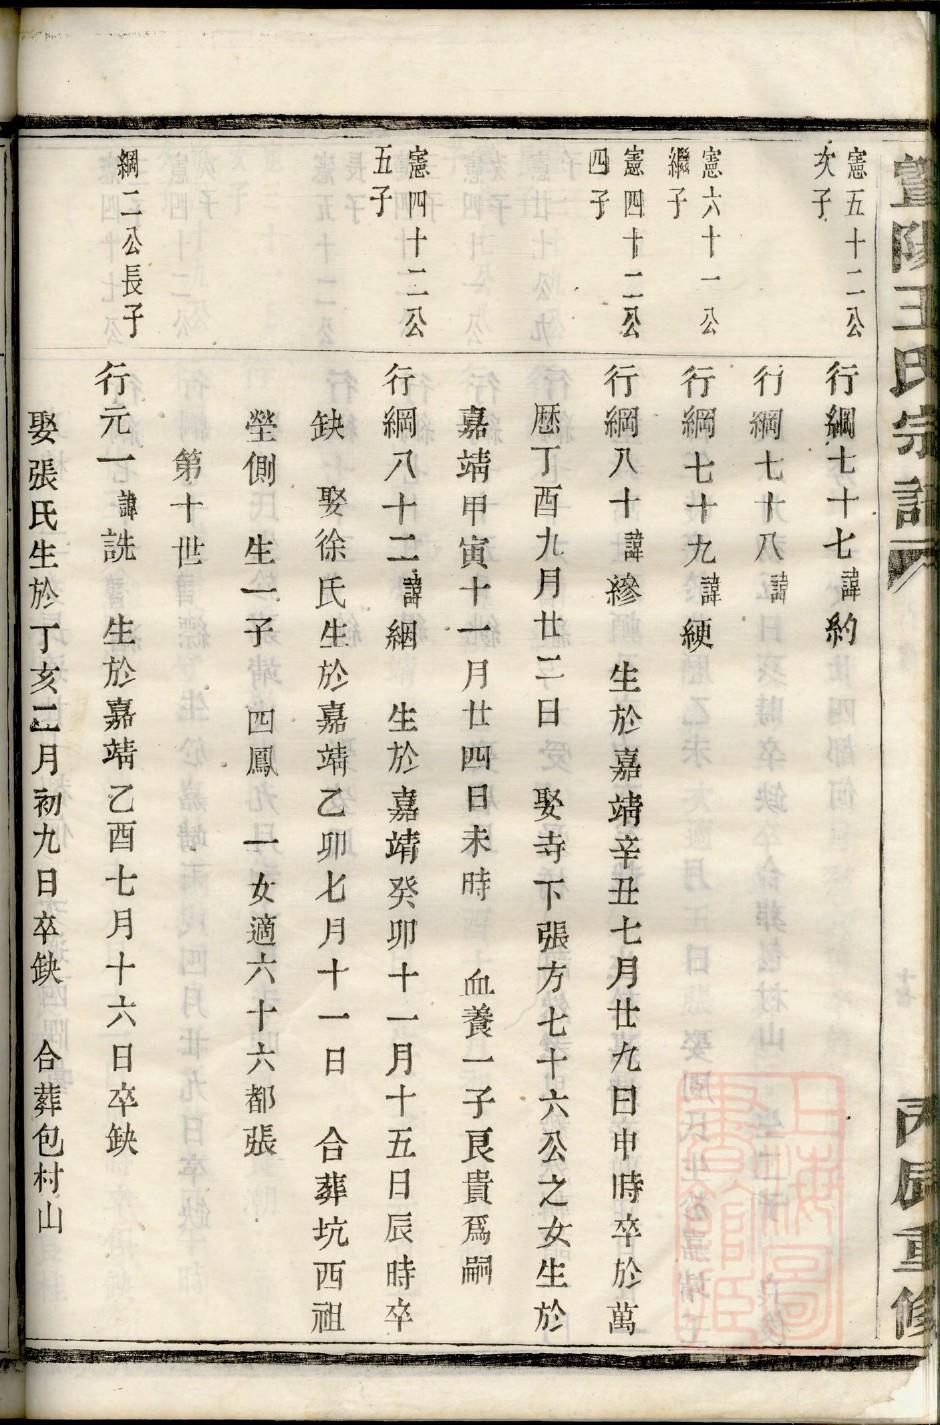 暨陽王氏宗譜
丙辰重修
憲五十二公
次子
行綱七十七諱約
行綱七十八諱
憲六十一公
繼子
行綱七十九諱綆
憲四十二公
四子
行綱八十諱縿 生於嘉靖辛丑七月廿九日申時卒於萬
歴丁酉九月廿三日 娶寺下張方七十六公之女生於
嘉靖甲寅十一月廿四日未時 血養一子良貴爲嗣
憲四十二公
五子
行綱八十二諱絪 生於嘉靖癸卯十一月十五日辰時卒
缺 娶徐氏生於嘉靖乙卯七月十一日 合葬坑西祖
塋側 生一子 四鳳 一女適六十六都張
第十世
綱二公長子
行元一諱詵 生於嘉靖乙酉七月十六日卒缺
娶張氏生於丁亥二月初九日卒缺 合葬包村山